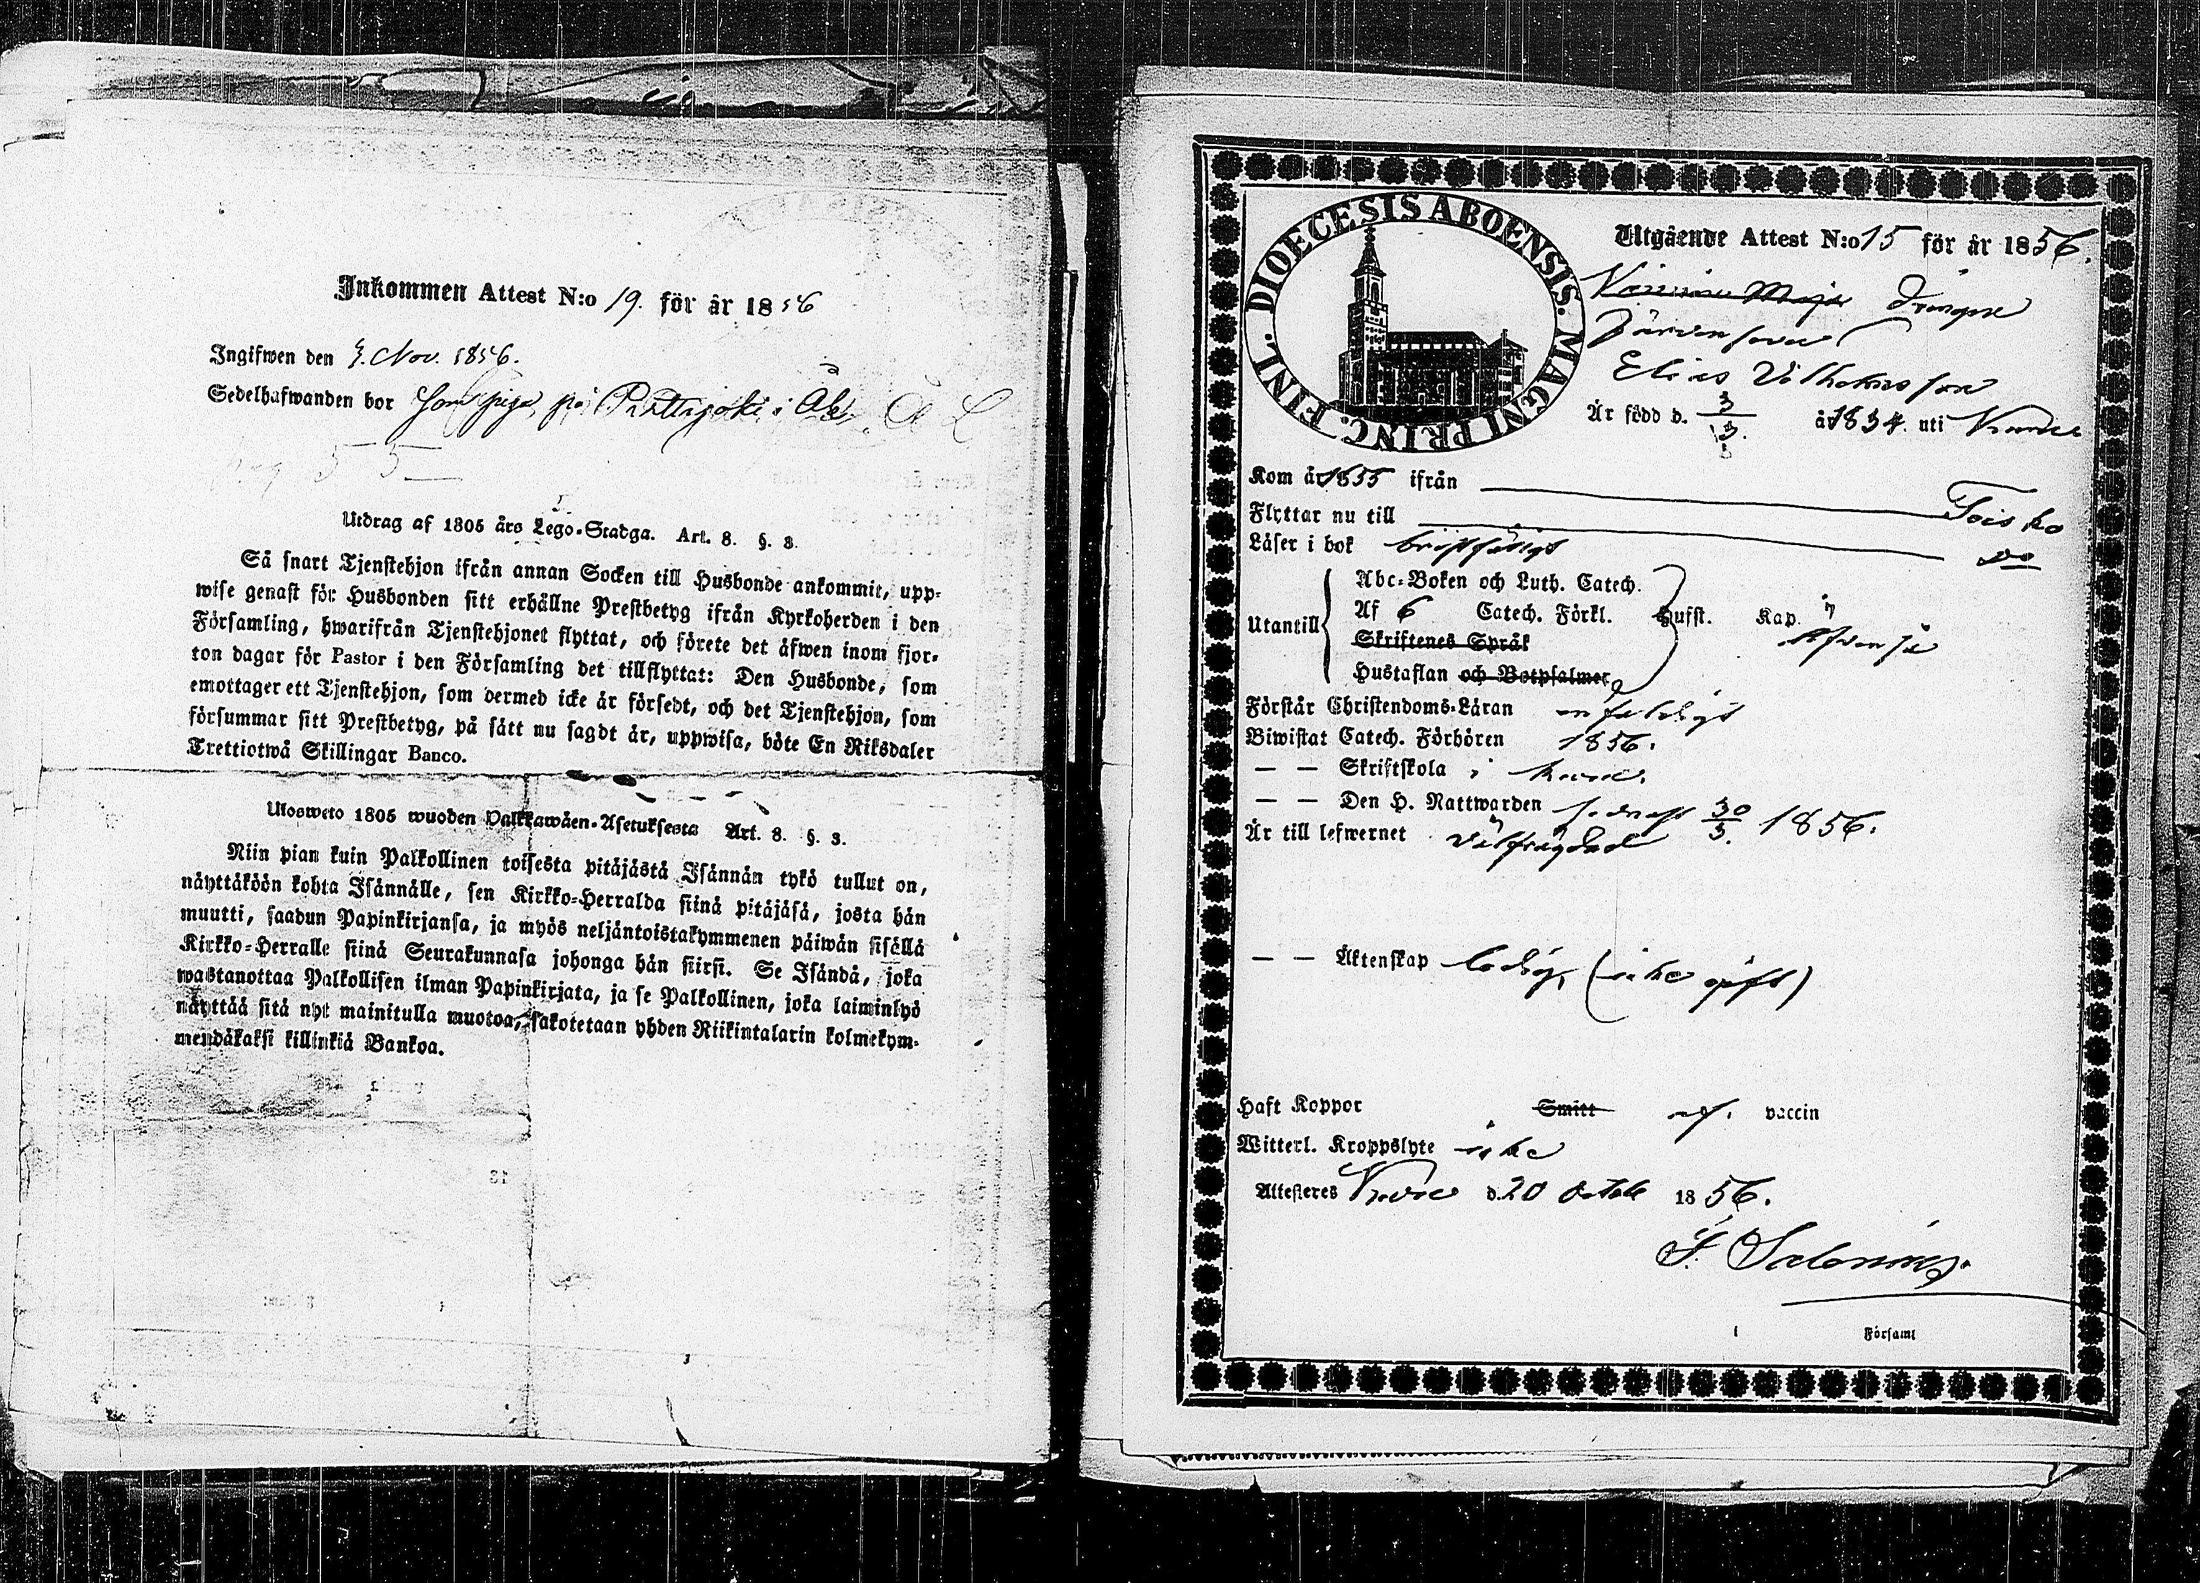 Inkommen Attest N:o 19. för år 1856
Ingifwen den 3. Nov. 1856.
Sedelhafwanden bor Som piga på i
55
Utdrag af 1805 års Lego-Stadga. Art. 8. §. 3.
Så snart Tjenstehjon ifrån annan Socken till Husbonde ankommit, upp-
wise genast för Husbonden sitt erhållne Prestbetyg ifrån Kyrkoherden i den
Församling, hwarifrån Tjenstehjonet flyttat, och förete det äfwen inom fjor-
ton dagar för Pastor i den Församling det tillflyttat: Den Husbonde, som
emottager ett Tjenstehjon, som dermed icke är försedt, och det Tjenstehjon, som
försummar sitt Prestbetyg, på sätt nu sagdt är, uppwisa, böte En Riksdaler
Trettiotwå Skillingar Banco.
Ulosweto 1805 wuoden Palkkawäen-Asetuksesta Art. 8. §. 3.
Niin pian kuin Palkollinen toisesta pitäjästä Isännän tykö tullut on,
näyttäköön kohta Isännälle, sen Kirkko-Herralda siinä pitäjäsä, josta hän
muutti, saadun Papinkirjansa, ja myös neljäntoistakymmenen päiwän sisällä
Kirkko-Herralle siinä Seurakunnasa johonga hän siirsi. Se Isändä, joka
wastanottaa Palkollisen ilman Papinkirjata, ja se Palkollinen, joka laiminlyö
näyttää sitä nyt mainitulla muotoa, sakotetaan yhden Riikintalarin kolmekym-
mendäkaksi killinkiä Bankoa.
DIOECESIS ABOENSIS. MAGNI PRINC. FINL.
Utgående Attest N:o 15 för år 1856.
Maja Drängen
Elias Vilhelmsson
Är född d. 3/3. år 1834. uti
Kom år 1855 ifrån Teisko
Flyttar nu till do
Läser i bok bristfälligt
Abc-Boken och Luth. Catech.
Utantill Af 6 Catech. Förkl. Hufst. Kap.
Skriftenes Språk
Hustaflan och Botpsalmer
Förstår Christendoms-Läran enfaldigt
Biwistat Catech. Förhören 1856.
— — Skriftskola i
— — Den H. Nattwarden sednast 30/3. 1856.
Är till lefwernet välfrägdad
— — Äktenskap ledig, (icke gift)
Haft Koppor Smitt vaccin
Witterl. Kroppslyte icke
Attesteres d. 20 Octob 1856.
F. Salonius.
Församl